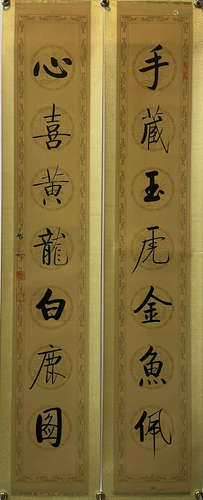 手藏玉虎金魚佩
心喜黃龍白鹿圖